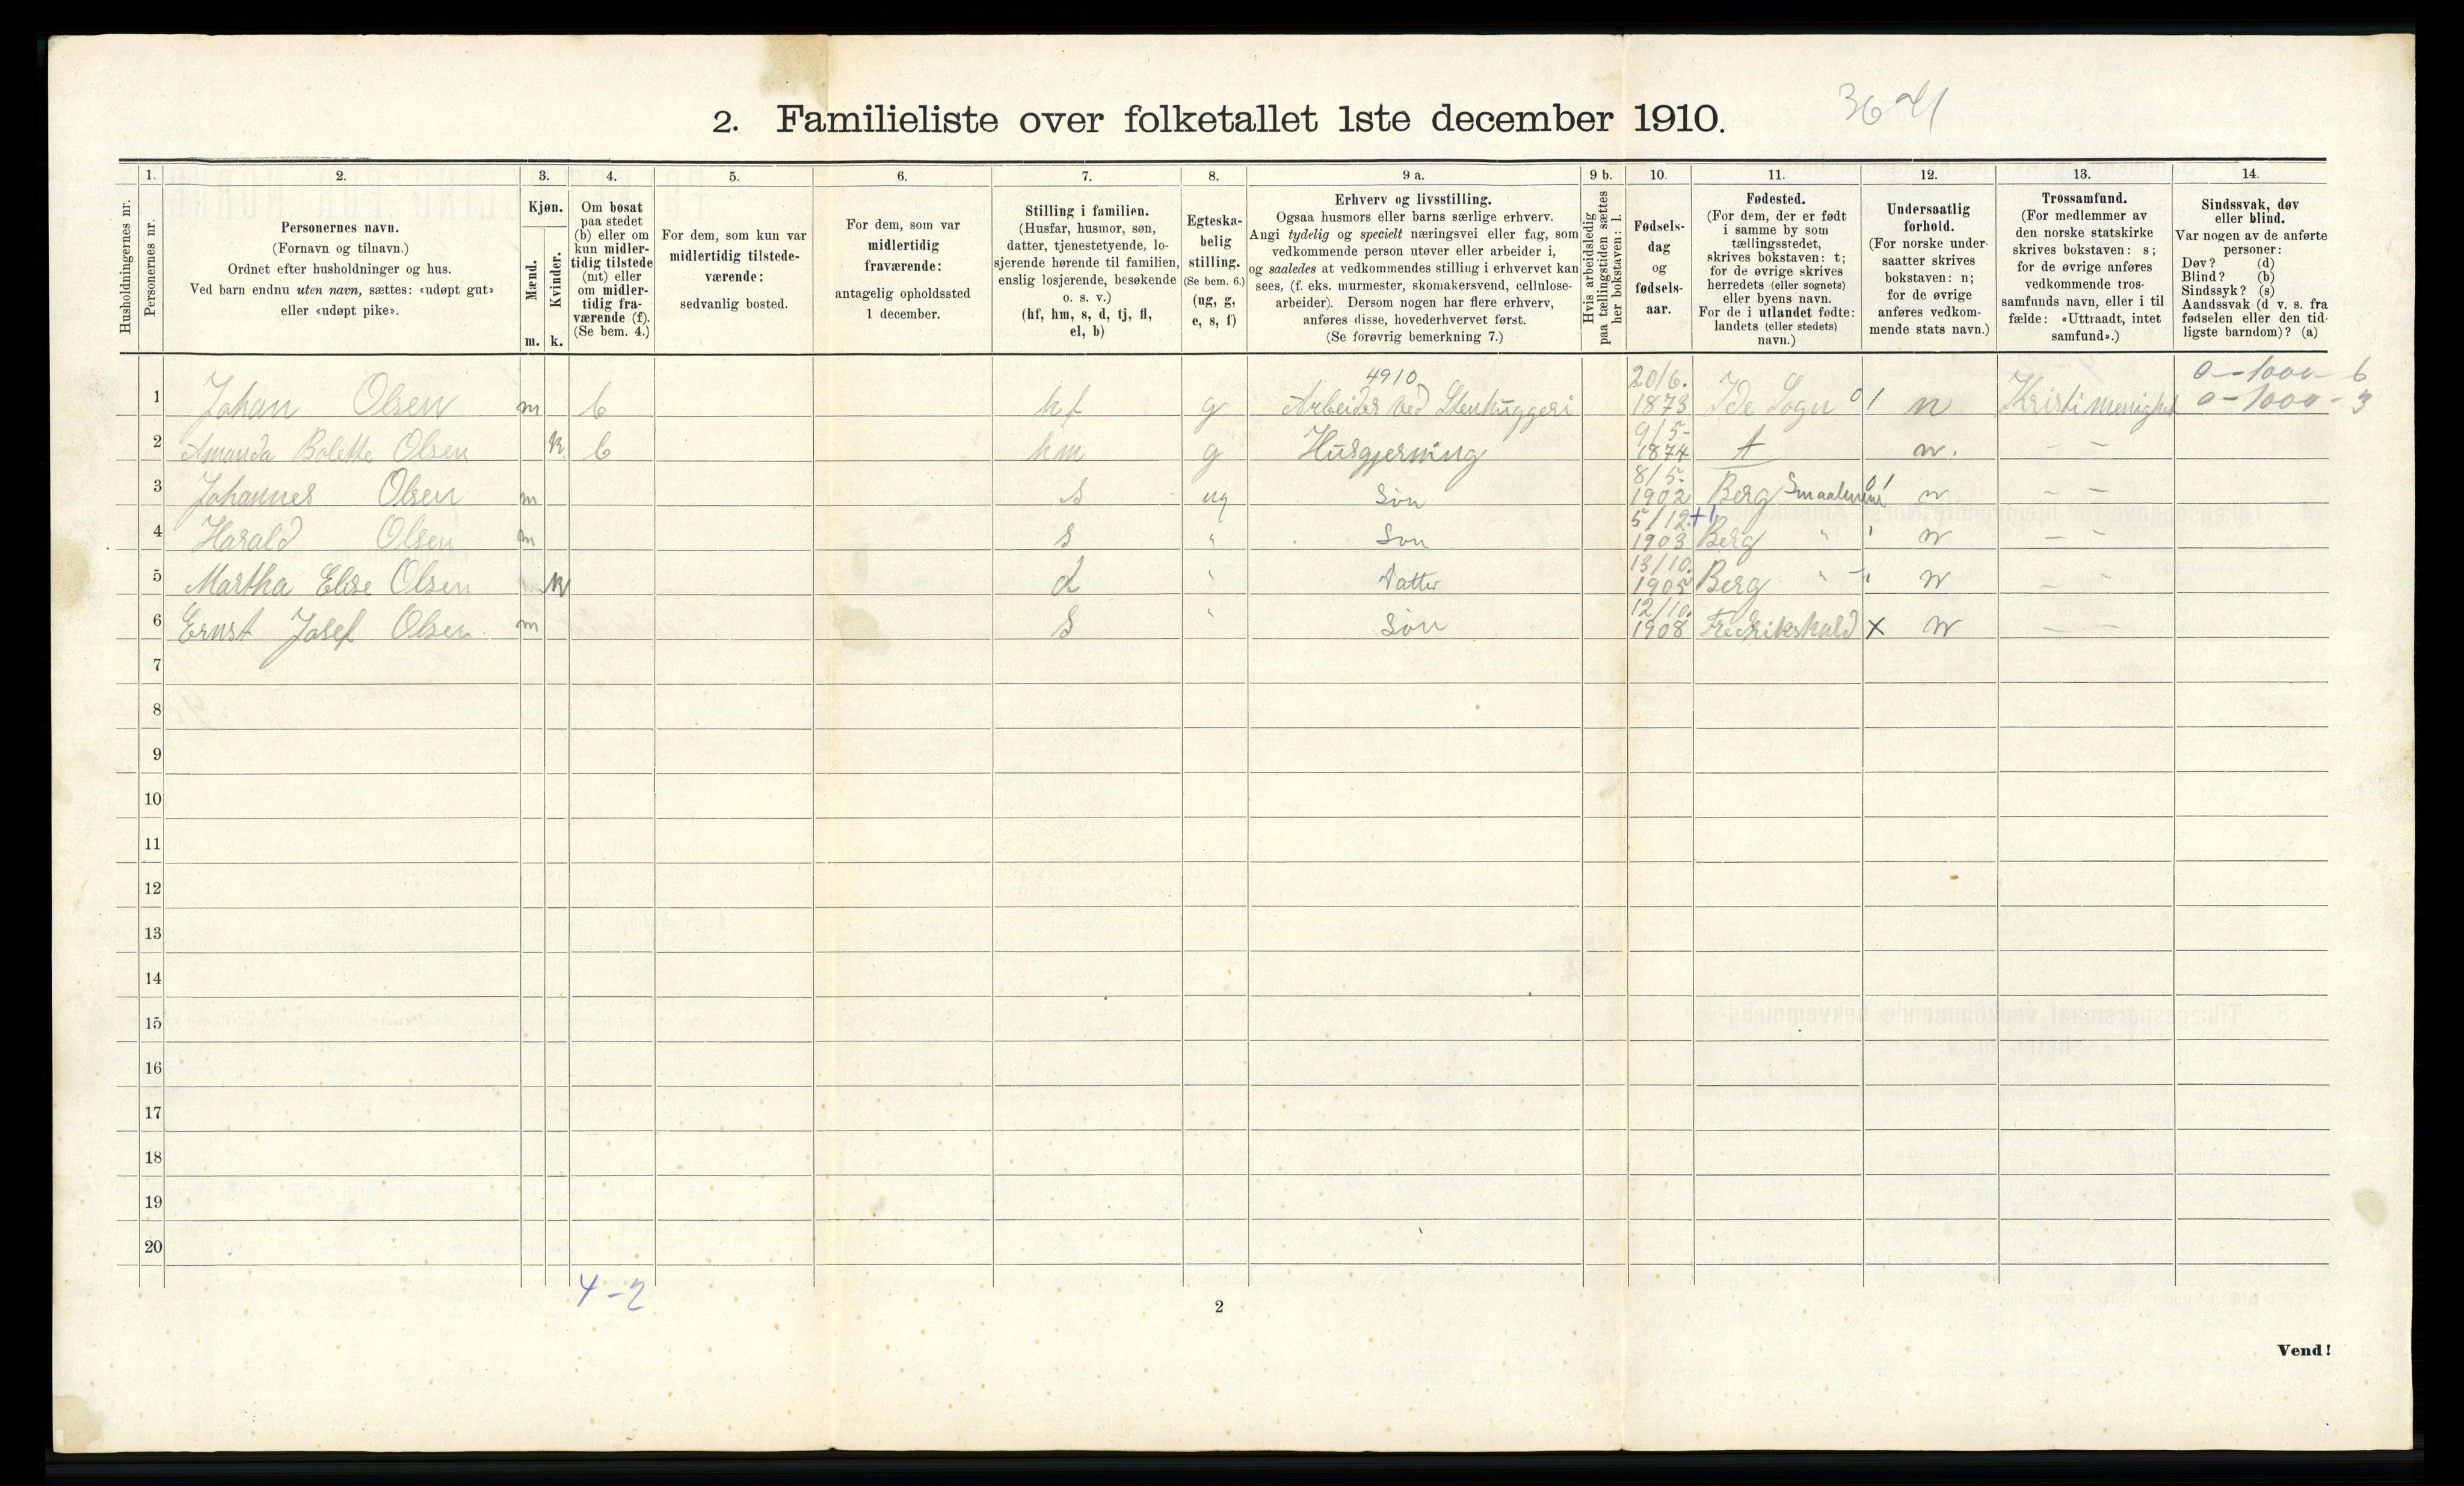 2. Familieliste over folketallet 1ste december 1910.
Husholdningernes nr.
1.
Personernes nr.
2.
Personernes navn.
(Fornavn og tilnavn.)
Ordnet efter husholdninger og hus.
Ved barn endnu uten navn, sættes: «udøpt gut»
eller «udøpt pike».
3.
Kjøn.
Mænd.
Kvinder.
m. k.
4.
Om bosat
paa stedet
(b) eller om
kun midler-
tidig tilstede
(mt) eller
om midler-
tidig fra-
værende (f).
(Se bem. 4.)
5.
For dem, som kun var
midlertidig tilstede-
værende:
sedvanlig bosted.
6.
For dem, som var
midlertidig
fraværende:
antagelig opholdssted
1 december.
7.
Stilling i familien.
(Husfar, husmor, søn,
datter, tjenestetyende, lo-
sjerende hørende til familien,
enslig losjerende, besøkende
o. s. v.)
(hf, hm, s, d, tj, fl,
el, b)
8.
Egteska-
belig
stilling.
(Se bem. 6.)
(ug, g,
e, s, f)
9 a.
Erhverv og livsstilling.
Ogsaa husmors eller barns særlige erhverv.
Angi tydelig og specielt næringsvei eller fag, som
vedkommende person utøver eller arbeider i,
og saaledes at vedkommendes stilling i erhvervet kan
sees, (f. eks. murmester, skomakersvend, cellulose-
arbeider). Dersom nogen har flere erhverv,
anføres disse, hovederhvervet først.
(Se forøvrig bemerkning 7.)
9 b.
Hvis arbeidsledig
paa tællingstiden sættes
her bokstaven: l.
10.
Fødsels-
dag
og
fødsels-
aar.
11.
Fødested.
(For dem, der er født
i samme by som
tællingsstedet,
skrives bokstaven: t;
for de øvrige skrives
herredets (eller sognets)
eller byens navn.
For de i utlandet fødte:
landets (eller stedets)
navn.)
12.
Undersaatlig
forhold.
(For norske under-
saatter skrives
bokstaven: n;
for de øvrige
anføres vedkom-
mende stats navn.)
13.
Trossamfund.
(For medlemmer av
den norske statskirke
skrives bokstaven: s;
for de øvrige anføres
vedkommende tros-
samfunds navn, eller i til
fælde: «Uttraadt, intet
samfund».)
14.
Sindssvak, døv
eller blind.
Var nogen av de anførte
personer:
Døv? (d)
Blind? (b)
Sindssyk? (s)
Aandssvak (d v. s. fra
fødselen eller den tid-
ligste barndom)? (a)
4910
0-1000-6
1 Johan Olsen m b hf g Arbeider ved Stenhuggeri 20/6. 1873 Ide Sogn 01 n Kristi menighet 0-1000-3
2 Amanda Bolette Olsen k b hm g Husgjerning 9/5- 1874 t n. — —
3 Johannes Olsen m s ug Søn 8/5. 1902 Berg Smaalenene 01 n — —
4 Harald Olsen m s " Søn 5/12. 1903 +1 Berg " ' n — —
5 Martha Elise Olsen k d " Datter 13/10. 1905 Berg " ' n — —
6 Ernst Josef Olsen m s " Søn 12/10. 1908 Fredrikshald x n — —
7
8
9
10
11
12
13
14
15
16
17
18
19
20
4-2
2
Vend!